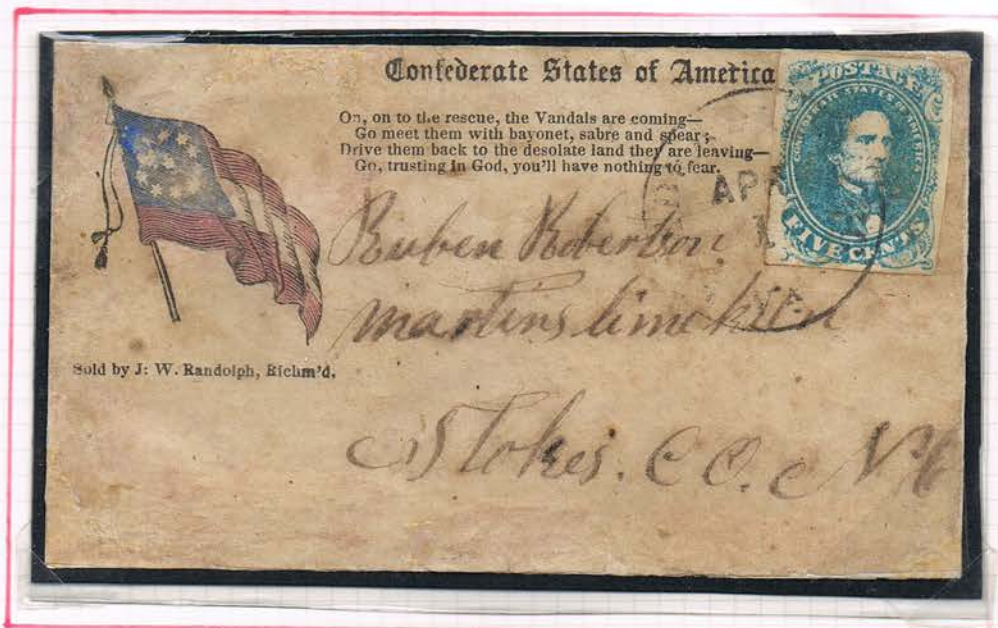 Confederate States of America
On, on to the rescue, the Vandals are coming—
Go meet them with bayonet, sabre and spear;
Drive them back to the desolate land they are leaving—
Go, trusting in God, you'll have nothing to fear.
POSTAGE
CONFEDERATE STATES OF AMERICA
FIVE CENTS
APR
Ruben Robertson
martins lime kiln
Sold by J: W. Randolph, Richm'd.
Stokes. C C. N C